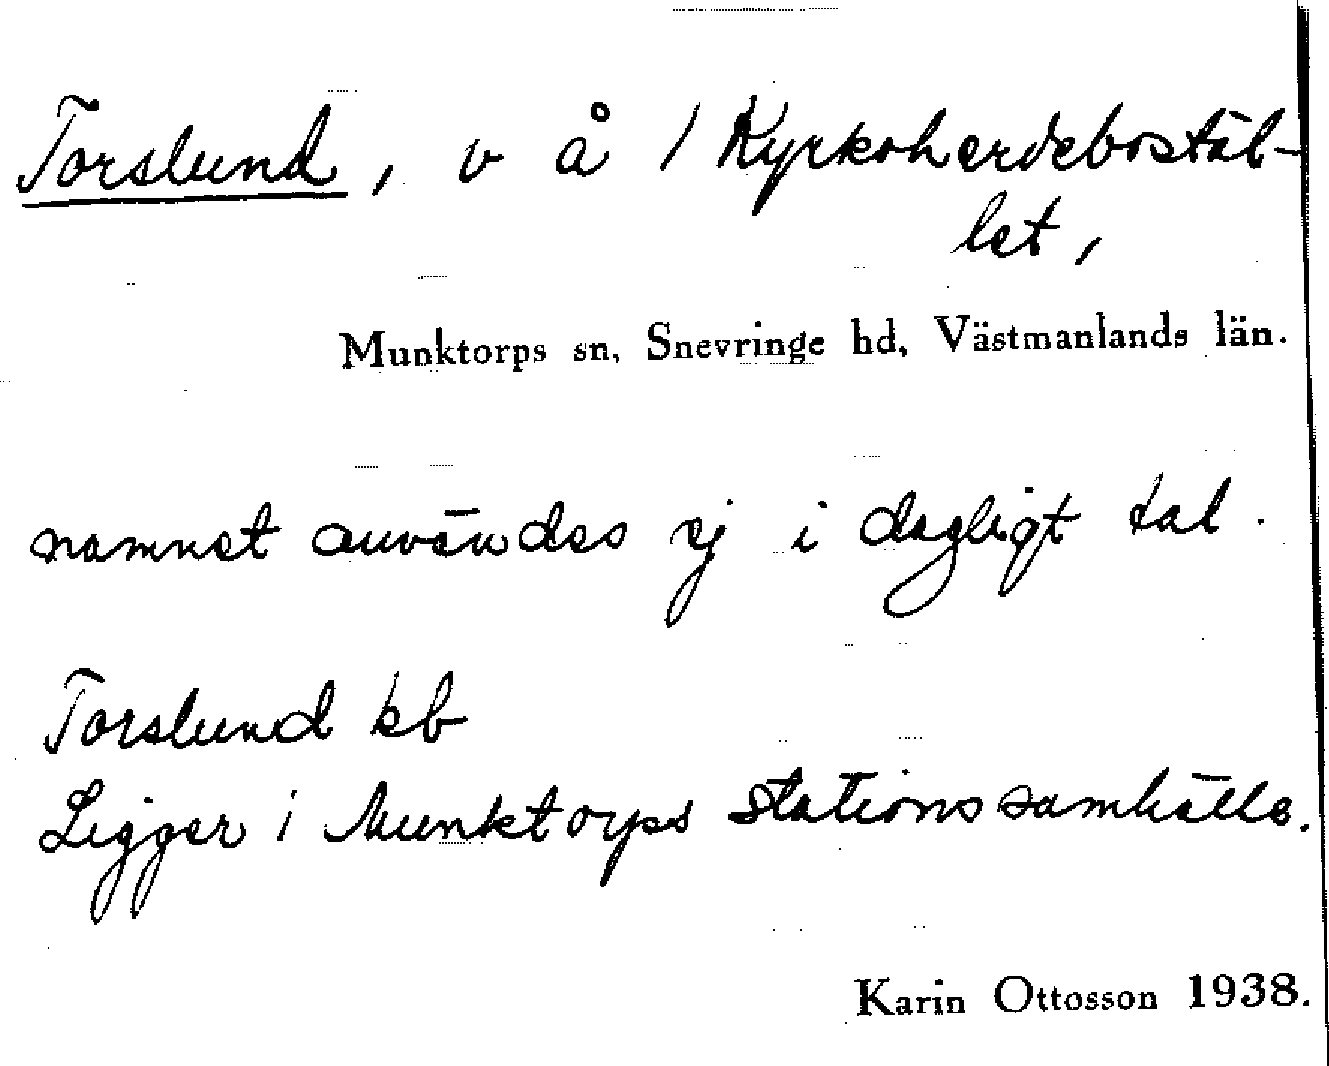 Torslund, v å / Kyrkoherdebostäl-
let,
Munktorps sn, Snevringe hd, Västmanlands län.
namnet användes ej i dagligt tal.
Torslund kb
Ligger i Munktorps stationssamhälle.
Karin Ottosson 1938.